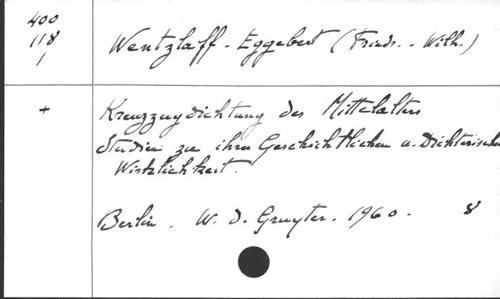 400
118
1
Wentzlaff-Eggebert (Friedr.-Wilh.)
+
Kreuzzugdichtung des Mittelalters
Studien zu ihrer Geschichtlichen u. Dichterischen
Wirklichkeit.
Berlin. W. d. Gruyter. 1960. 8